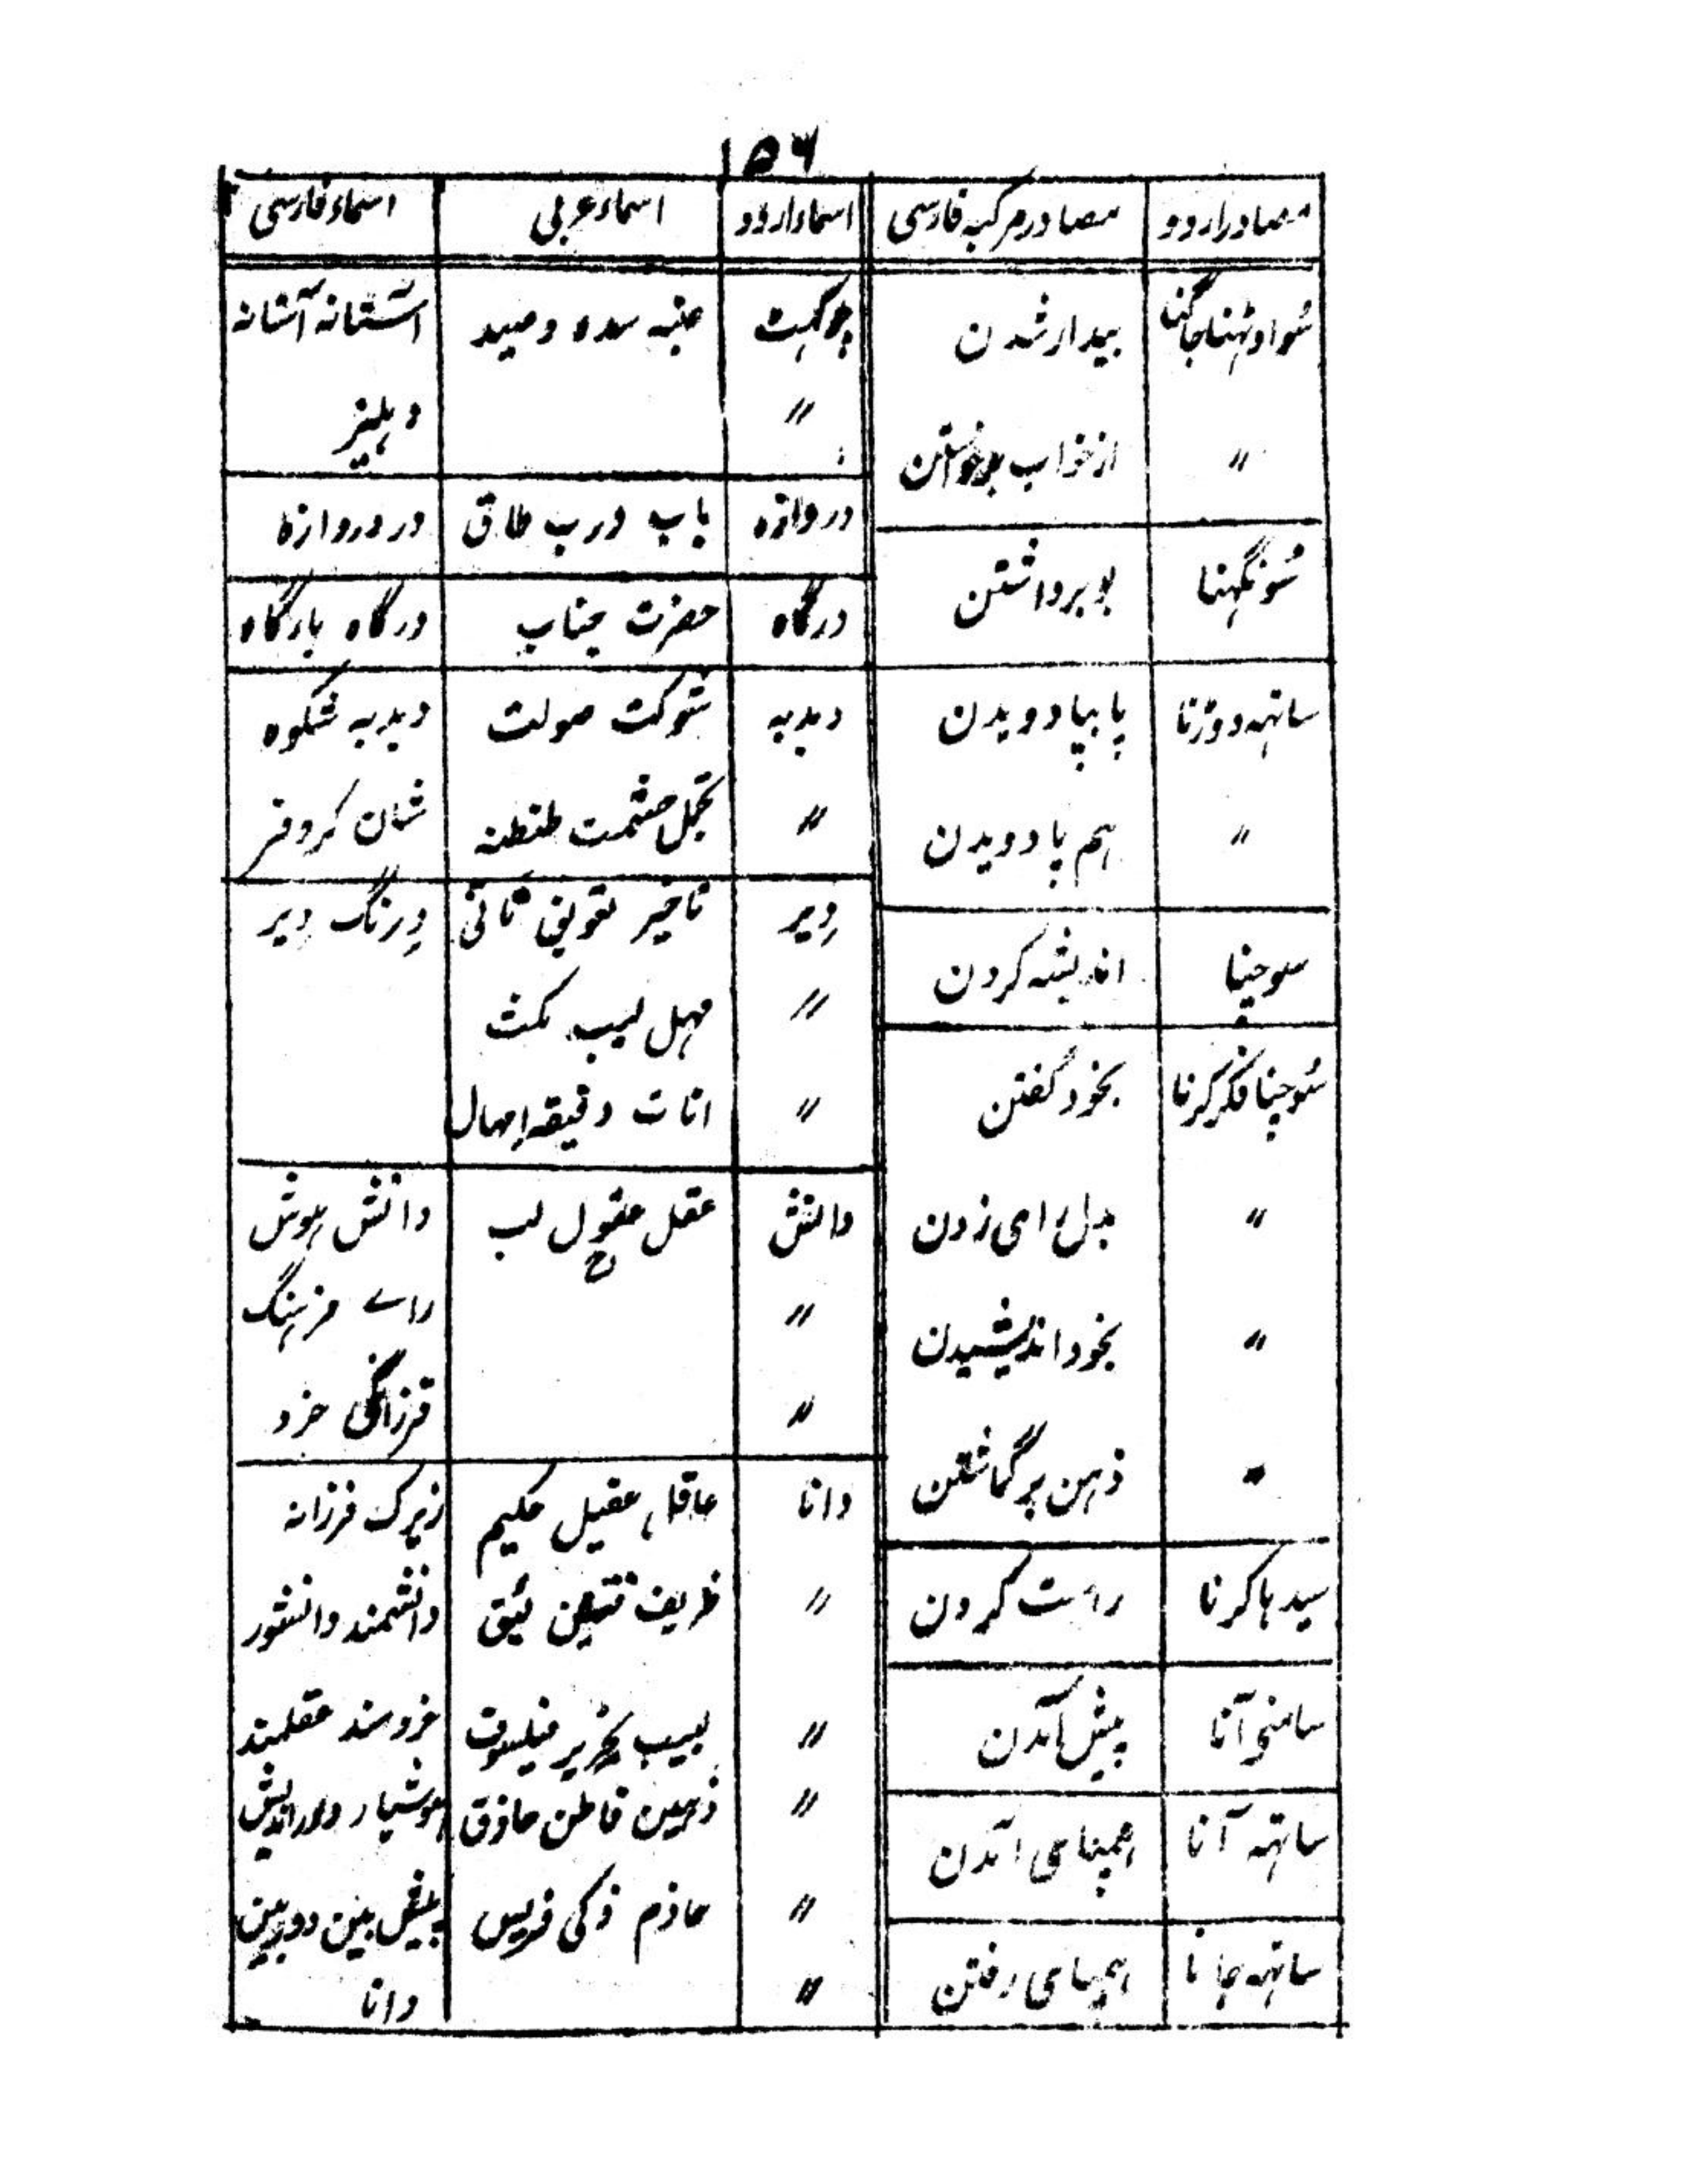 ۱۵۶
مصادر اردو | مصادر مرکبہ فارسی | اسماء اردو | اسماء عربی | اسماء فارسی
سُو اوٹہنا جاگنا | بیدار شدن
〃 | از خواب برخواستن
سُونگہنا | بو برداشتن
ساتہہ دوڑنا | پا بپا دویدن
〃 | ہم پا دویدن
سوچنا | اندیشہ کردن
سُوچنا فکر کرنا | بخود گفتن
〃 | بدل رای زدن
〃 | بخود اندیشیدن
〃 | ذہن برگماشتن
سیدہا کرنا | راست کردن
سامنی آنا | پیش آمدن
ساتہہ آنا | ہمپای آمدن
ساتہہ جانا | ہمپای رفتن
چوکہٹ | سدہ وصید | آستانہ
〃 | دہلیز
دروازہ | باب درب طاق | در دروازہ
درگاہ | حضرت جناب | درگاہ بارگاہ
دبدبہ | شوکت صولت | دبدبہ شکوہ
〃 | تجمل حشمت طنطنہ | شان کروفر
دِیر | تاخیر تعویق تانی | دِرنگ دِیر
〃 | مہل مکث
〃 | انات دقیقہ اِمہال
دانش | عقل عقول لب | دانش ہوش
〃 | راے فرہنگ
〃 | فرزانگی خرد
دانا | عاقل عقیل حکیم | زیرک فرزانہ
〃 | ظریف | دانشمند دانشور
〃 | لبیب نحریر فیلسوف | خردمند عقلمند
〃 | ذہین فاطن حاذق | ہوشیار دوراندیش
〃 | حازم ذکی فریس | پیش بین دوربین
〃 | دانا